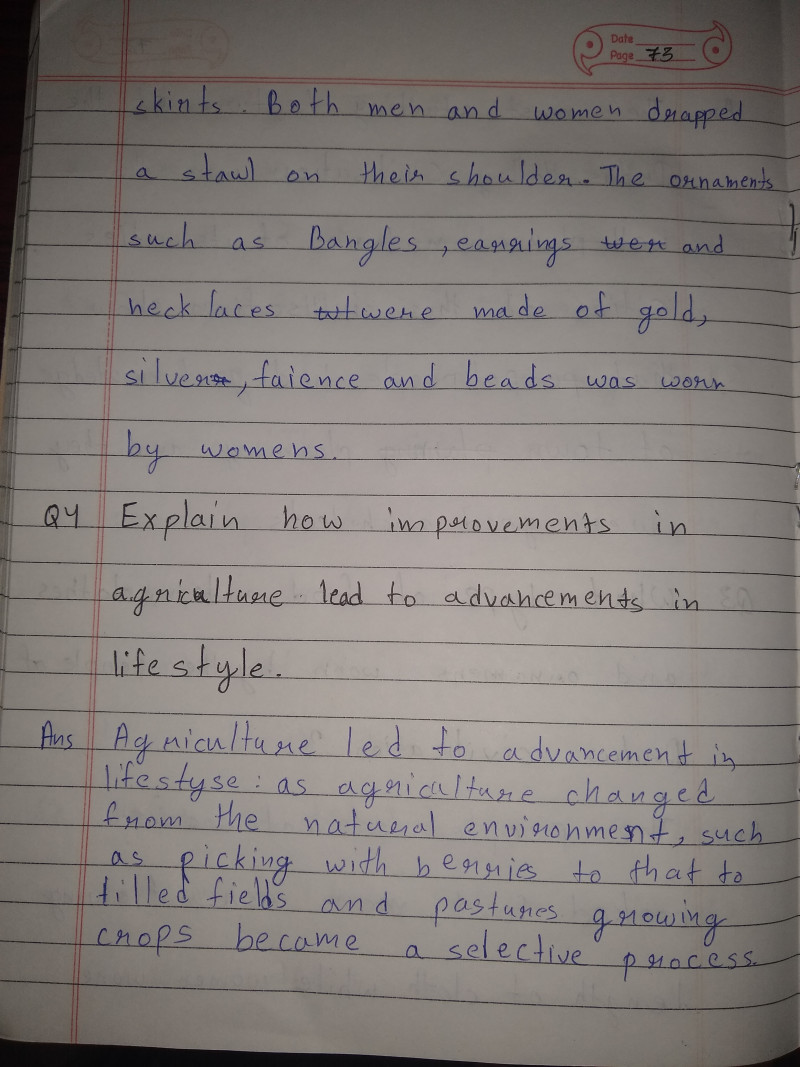 Date
Page 73
skirts. Both men and women drapped
a stawl on their shoulder. The ornaments
such as Bangles, earrings wer and
necklaces were made of gold,
silver, faience and beads was worn
by womens.
Q4 Explain how improvements in
agriculture lead to advancements in
lifestyle.
Ans Agriculture led to advancement in
lifestyse: as agriculture changed
from the natural environment, such
as picking with berries to that to
tilled fields and pastures growing
crops became a selective process.